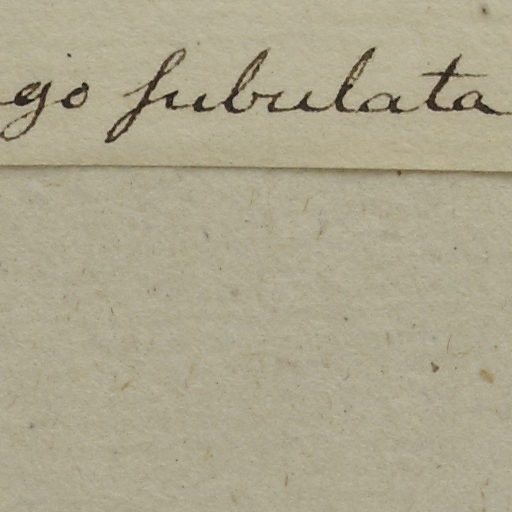 go subulata